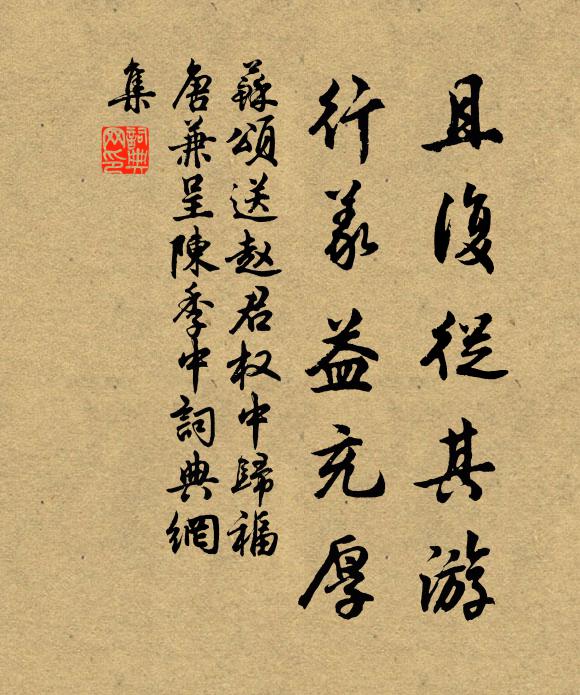 且復從其游
行義益充厚
蘇頌送赵君权中歸福
唐兼呈陳季中詞典網
集
詞典网印